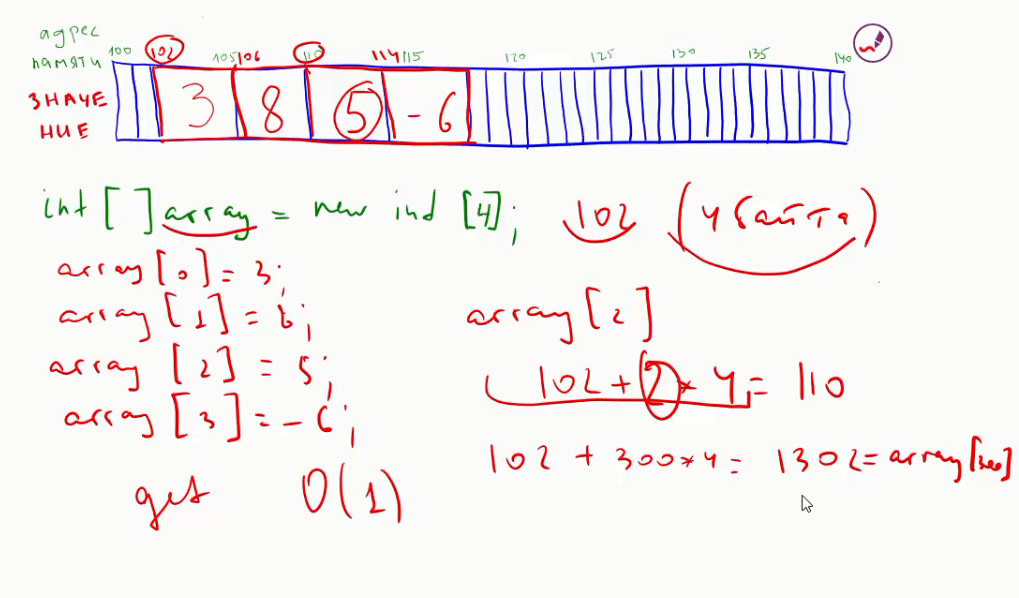 адрес
памяти 100 102 105 106 110 114 115 120 125 130 135 140
ЗНАЧЕ
НИЕ 3 8 5 -6
int [ ] array = new ind [4]; 102 (4 байта)
array [0] = 3;
array [1] = 6;
array [2]
array [2] = 5;
102 + 2 * 4 = 110
array [3] = -6;
102 + 300 * 4 = 1302 = array [300]
get O(1)